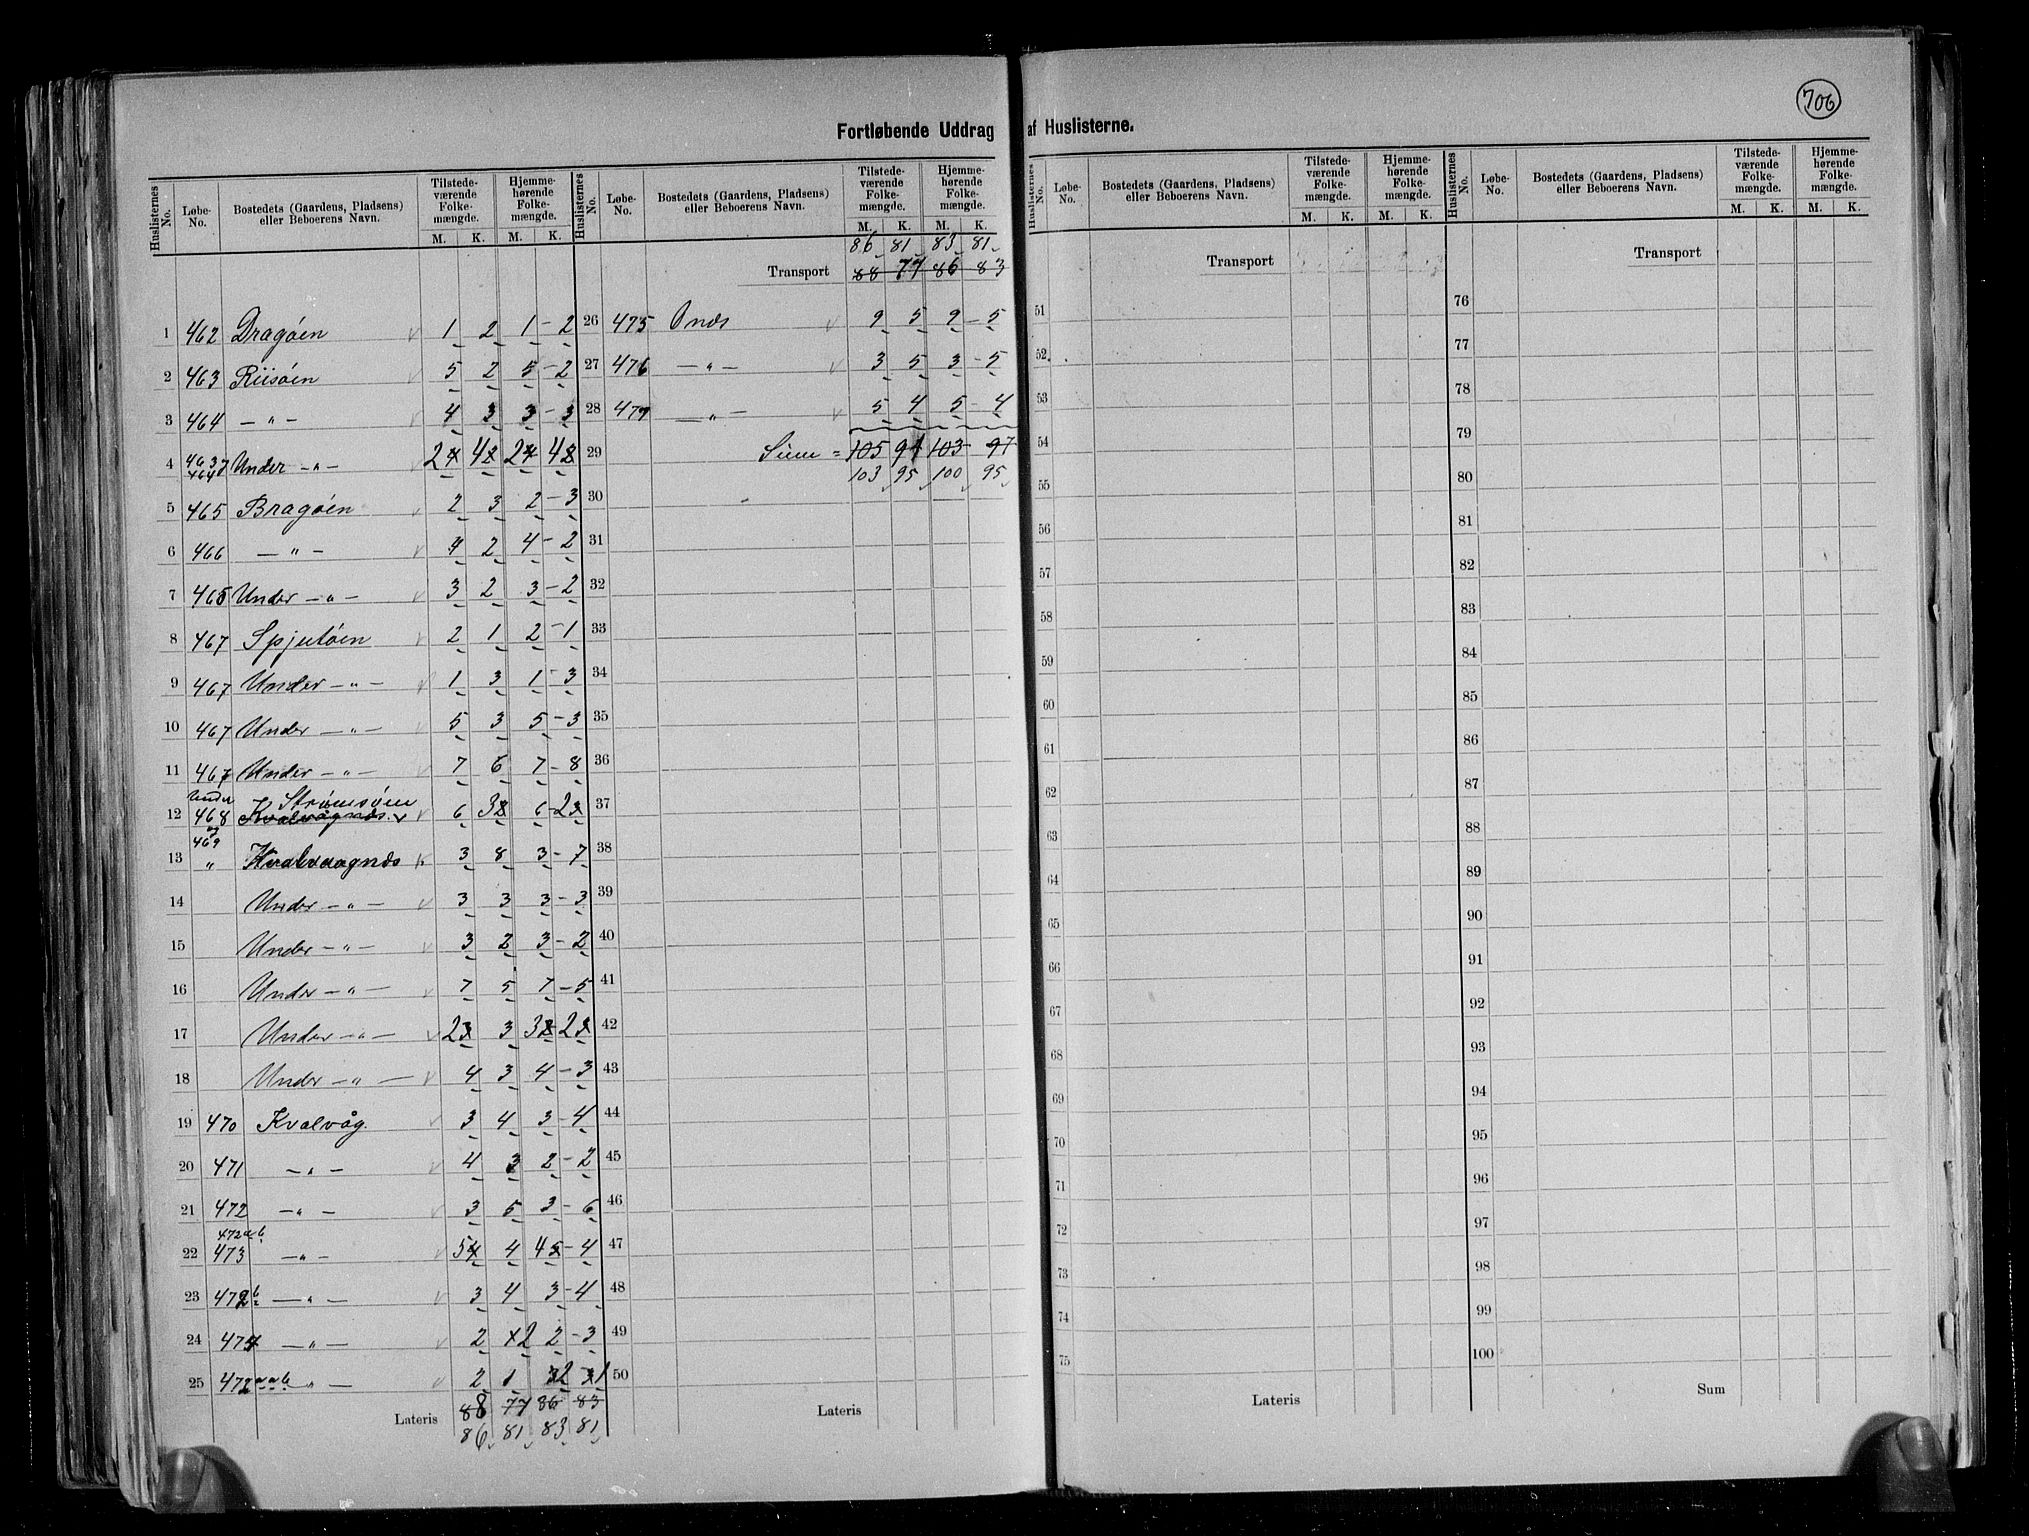 706
Fortløbende Uddrag af Huslisterne.
Huslisternes No. Løbe-No. Bostedets (Gaardens, Pladsens) eller Beboerens Navn. Tilstedeværende Folkemængde. M. K. Hjemmehørende Folkemængde. M. K.
1 462 Dragøen 1 2 1 - 2
2 463 Riisøen 5 2 5 - 2
3 464 — „ — 4 3 3 - 3
4 463 464 Under — „ — 2 4 2 4
5 465 Bragøen 2 3 2 - 3
6 466 — „ — 4 2 4 - 2
7 465 Under — „ — 3 2 3 - 2
8 467 Spjutøen 2 1 2 - 1
9 467 Under — „ — 1 3 1 - 3
10 467 Under — „ — 5 3 5 - 3
11 467 Under — „ — 7 6 7 - 8
12 Under 468 og 469 Strømsøen Kvalvågnæs 6 3 6 - 2
13 „ Hvalvaagnæs 3 8 3 - 7
14 Under — „ — 3 3 3 - 3
15 Under — „ — 3 2 3 - 2
16 Under — „ — 7 5 7 - 5
17 Under — „ — 2 3 3 - 2
18 Under — „ — 4 3 4 - 3
19 470 Kvalvåg. 3 4 3 - 4
20 471 — „ — 4 3 2 - 2
21 472 — „ — 3 5 3 - 6
22 472a-b 473 — „ — 5 4 4 - 4
23 472b — „ — 3 4 3 - 4
24 474 — „ — 2 2 2 - 3
25 472 — „ — 2 1 2 1
Lateris 88 77 86 83
86 81 83 81
Huslisternes No. Løbe-No. Bostedets (Gaardens, Pladsens) eller Beboerens Navn. Tilstedeværende Folkemængde. M. K. Hjemmehørende Folkemængde. M. K.
86 81 83 81
Transport 88 77 86 83
26 475 Onæs 9 5 9 - 5
27 476 — „ — 3 5 3 - 5
28 477 — „ — 5 4 5 - 4
29 Sum = 105 91 103 97
103 95 100 95
30
31
32
33
34
35
36
37
38
39
40
41
42
43
44
45
46
47
48
49
50
Lateris
Huslisternes No. Løbe-No. Bostedets (Gaardens, Pladsens) eller Beboerens Navn. Tilstedeværende Folkemængde. M. K. Hjemmehørende Folkemængde. M. K.
Transport
51
52
53
54
55
56
57
58
59
60
61
62
63
64
65
66
67
68
69
70
71
72
73
74
75
Lateris
Huslisternes No. Løbe-No. Bostedets (Gaardens, Pladsens) eller Beboerens Navn. Tilstedeværende Folkemængde. M. K. Hjemmehørende Folkemængde. M. K.
Transport
76
77
78
79
80
81
82
83
84
85
86
87
88
89
90
91
92
93
94
95
96
97
98
99
100
Sum